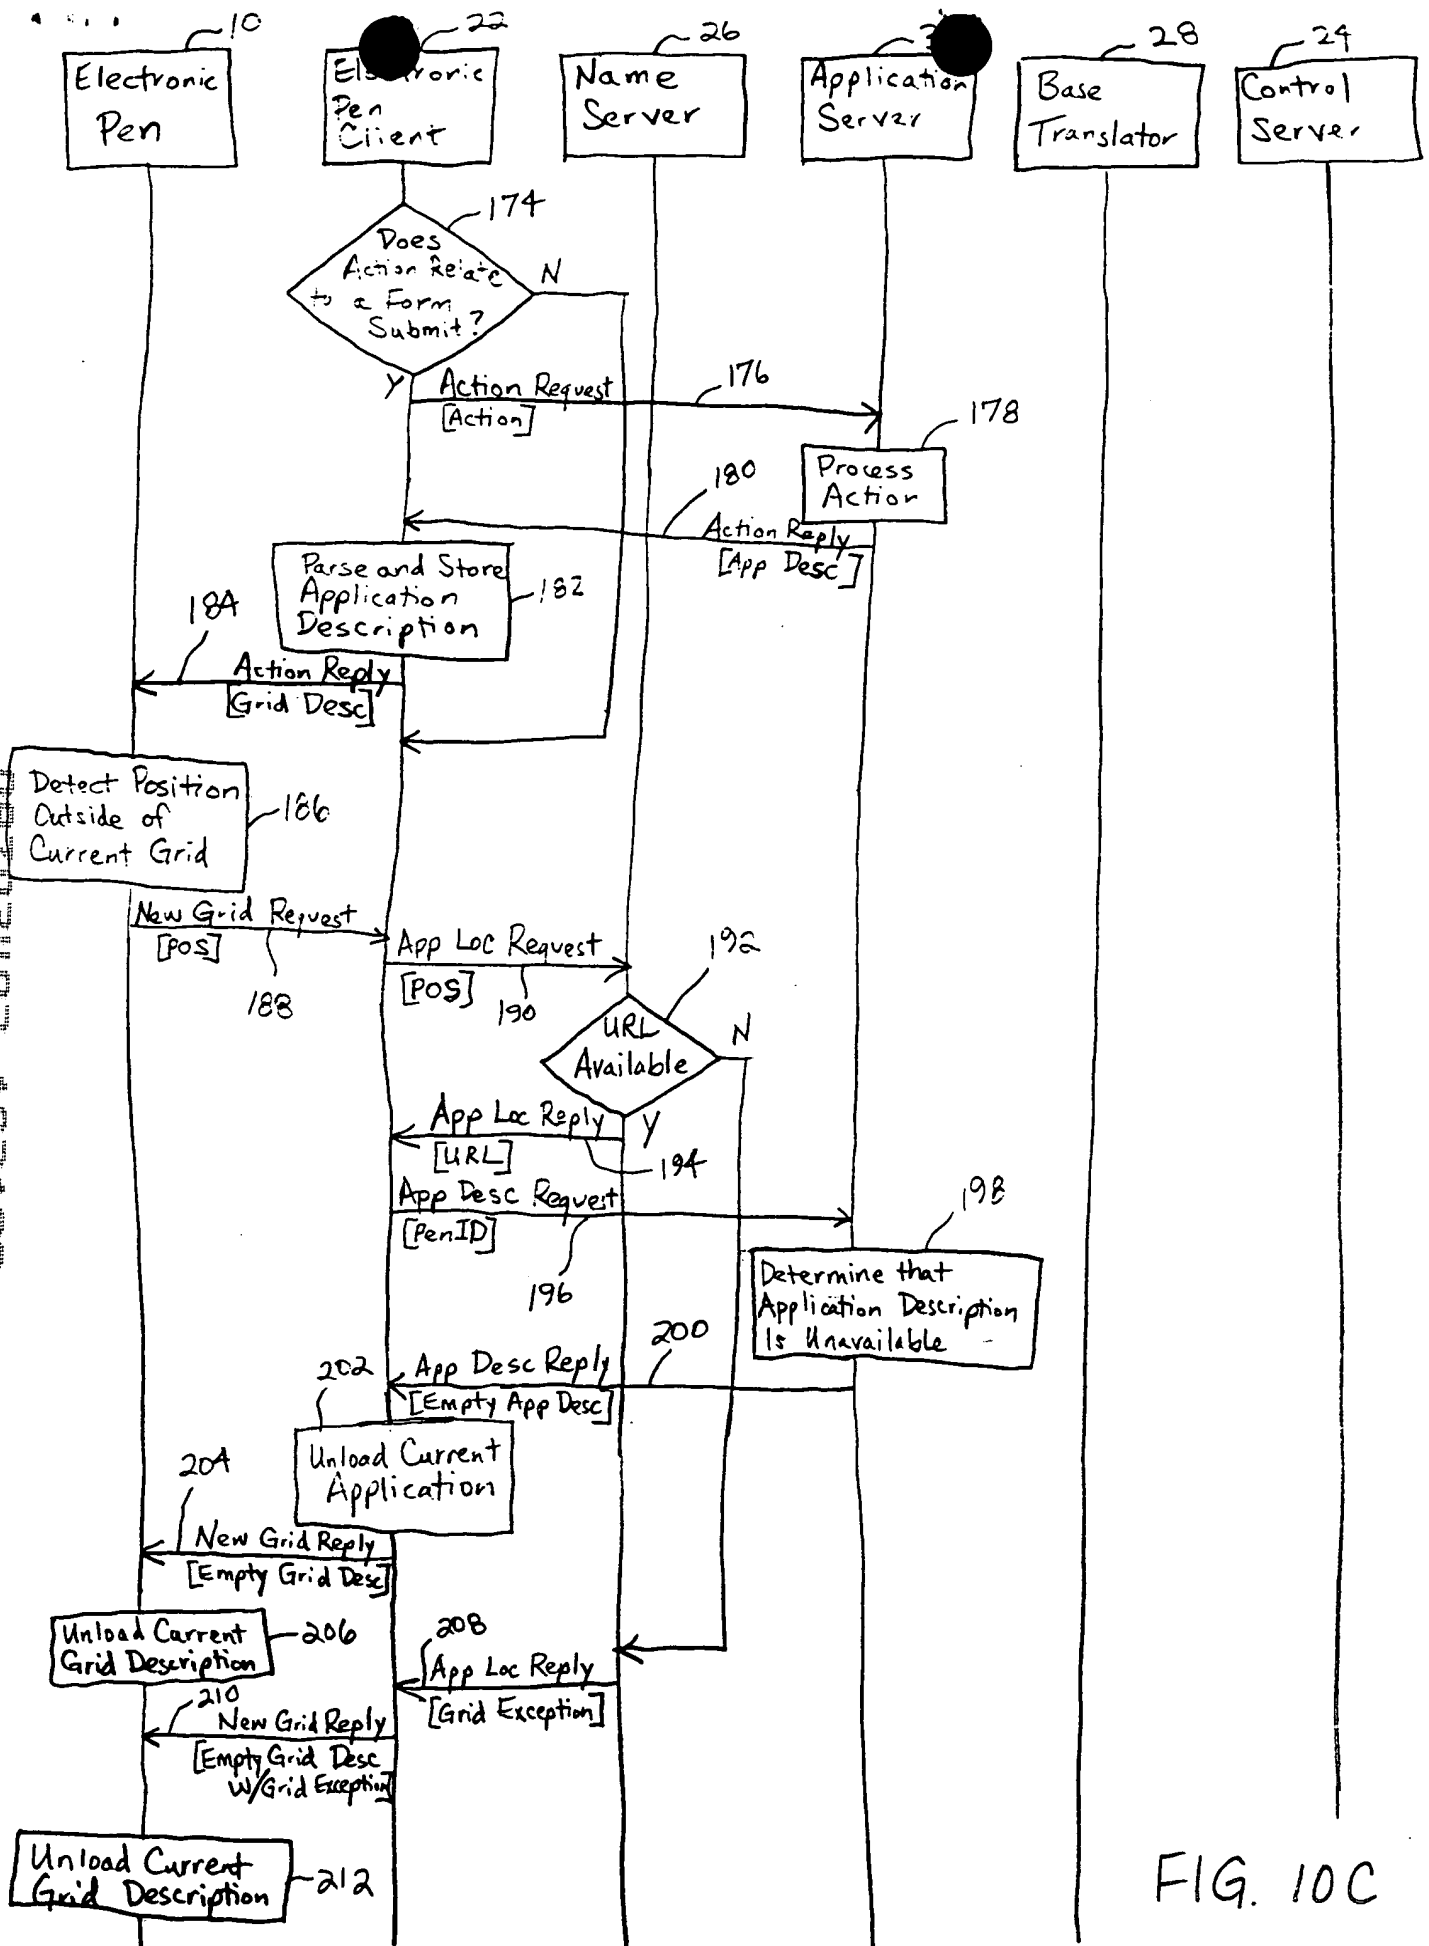 10
22
26
28
24
Electronic
Pen
Pen
Client
Name
Server
Application
Server
Base
Translator
Control
Server
174
Does
Action Relate
to a Form
Submit?
N
Y
Action Request
[Action]
176
178
Process
Action
180
Action Reply
[App Desc]
Parse and Store
Application
Description
182
184
Action Reply
[Grid Desc]
Detect Position
Outside of
Current Grid
186
New Grid Request
[POS]
188
App Loc Request
[POS]
190
192
URL
Available
N
Y
App Loc Reply
[URL]
194
App Desc Request
[PenID]
196
198
Determine that
Application Description
Is Unavailable
200
App Desc Reply
[Empty App Desc]
202
Unload Current
Application
204
New Grid Reply
[Empty Grid Desc]
Unload Current
Grid Description
206
208
App Loc Reply
[Grid Exception]
210
New Grid Reply
[Empty Grid Desc
W/Grid Exception]
Unload Current
Grid Description
212
FIG. 10C